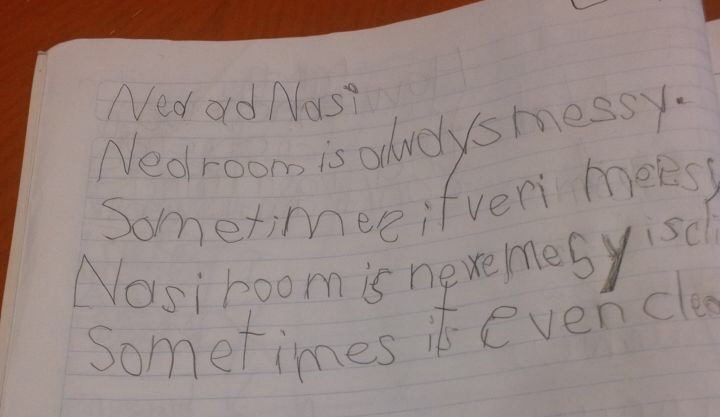 Ned ad Nasi
Nedroom is alwdys messy.
Sometimez it veri meesy
Nasi room is neve mesy is
Sometimes it's even